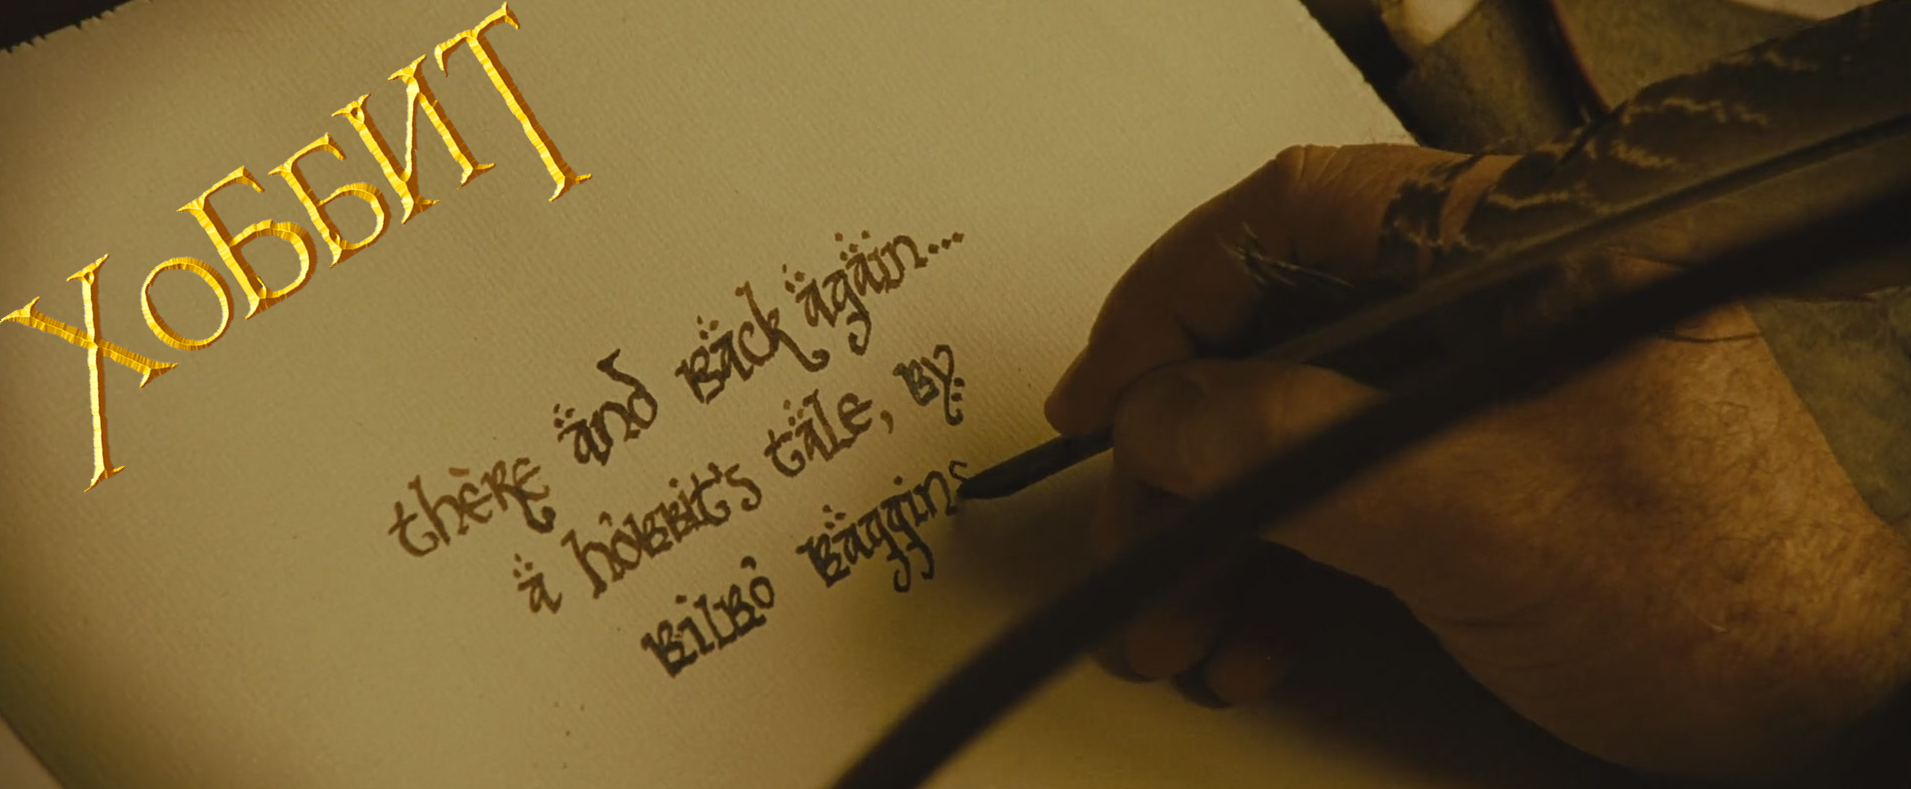 Хоббит
there and back again...
a hobbit's tale, by
Bilbo Baggins